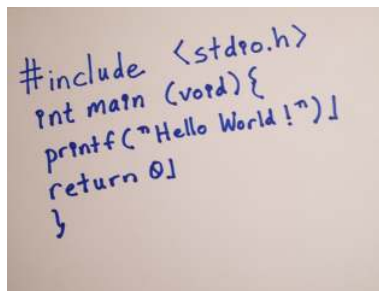 #include <stdio.h>
int main (void){
printf("Hello World!");
return 0;
}